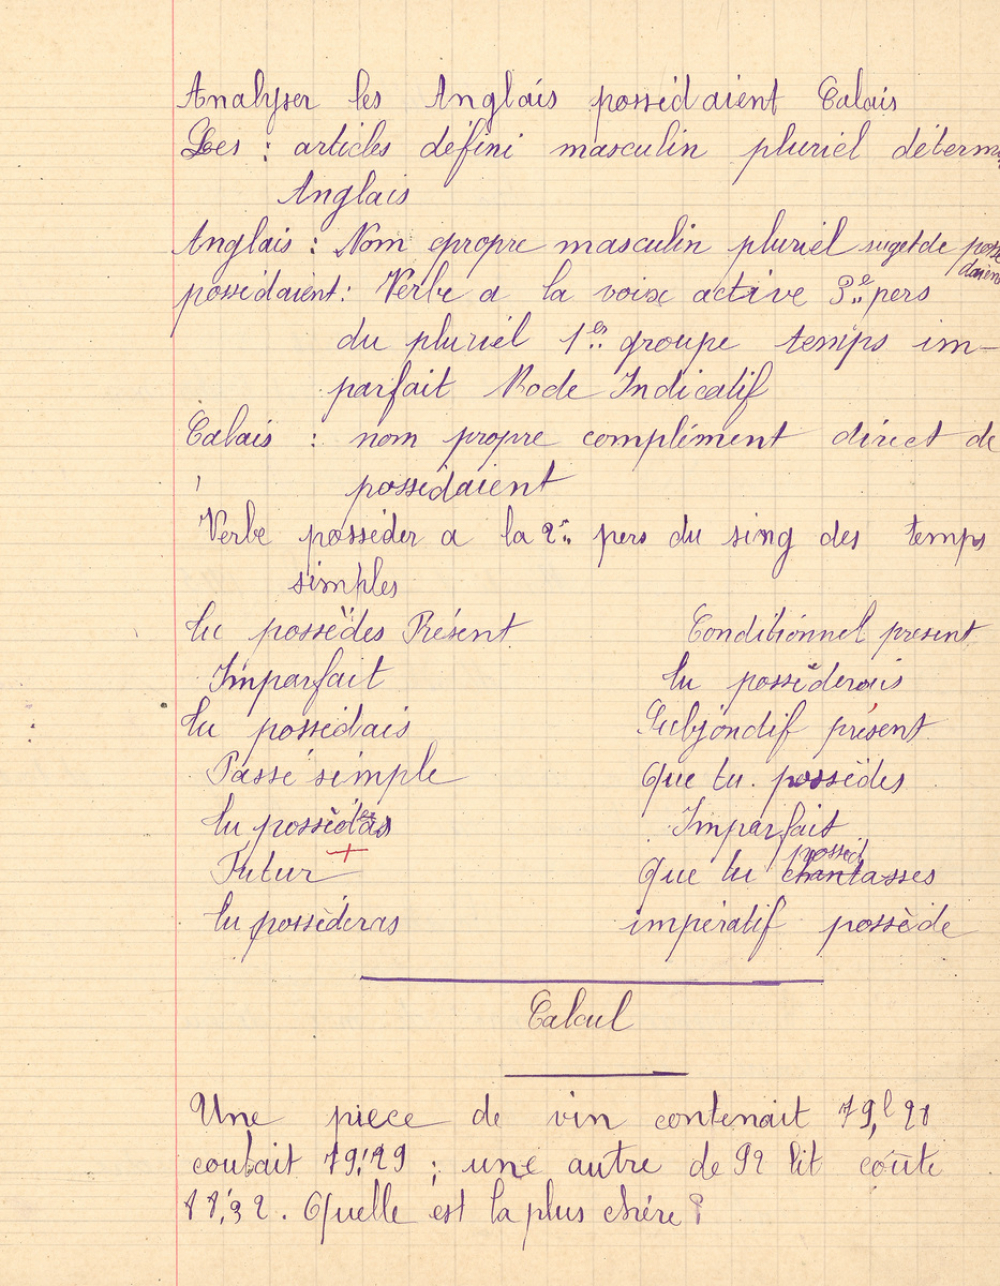 Analyser les Anglais possédaient Calais
Les : articles défini masculin pluriel déterm
Anglais
Anglais : Nom propre masculin pluriel suget de possé
daient
possédaient : Verbe a la voix active 3e pers
du pluriel 1er groupe temps im-
parfait Mode Indicatif
Calais : nom propre complément direct de
possédaient
Verbe posséder a la 2e pers du sing des temps
simples
tu possèdes Présent
Imparfait
tu possédais
Passé simple
tu possédas
Futur
tu possèderas
Conditionnel présent
tu possèderais
Subjonctif présent
Que tu possèdes
Imparfait
possed
Que tu chantasses
impératif possède
Calcul
Une piece de vin contenait
coutait une autre de 92 lit coûte
Quelle est la plus chère ?